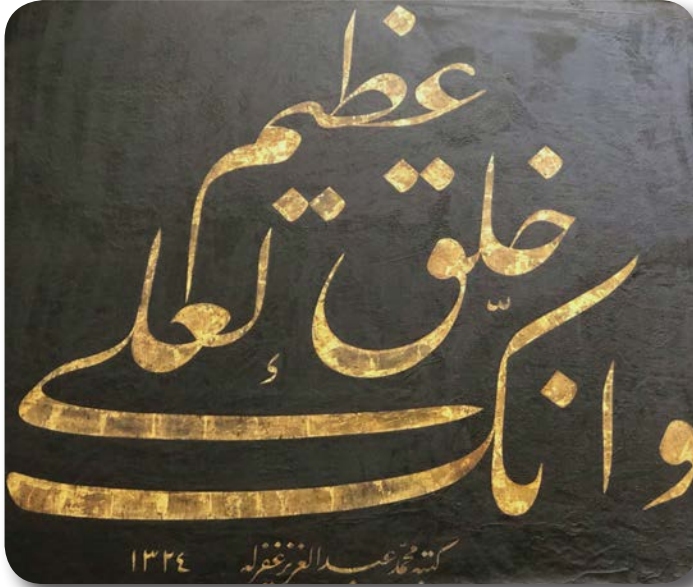 وانّك لعلى
خلق
عظيم
كتبه محمّد عبد العزيز غفر له ١٣٢٤